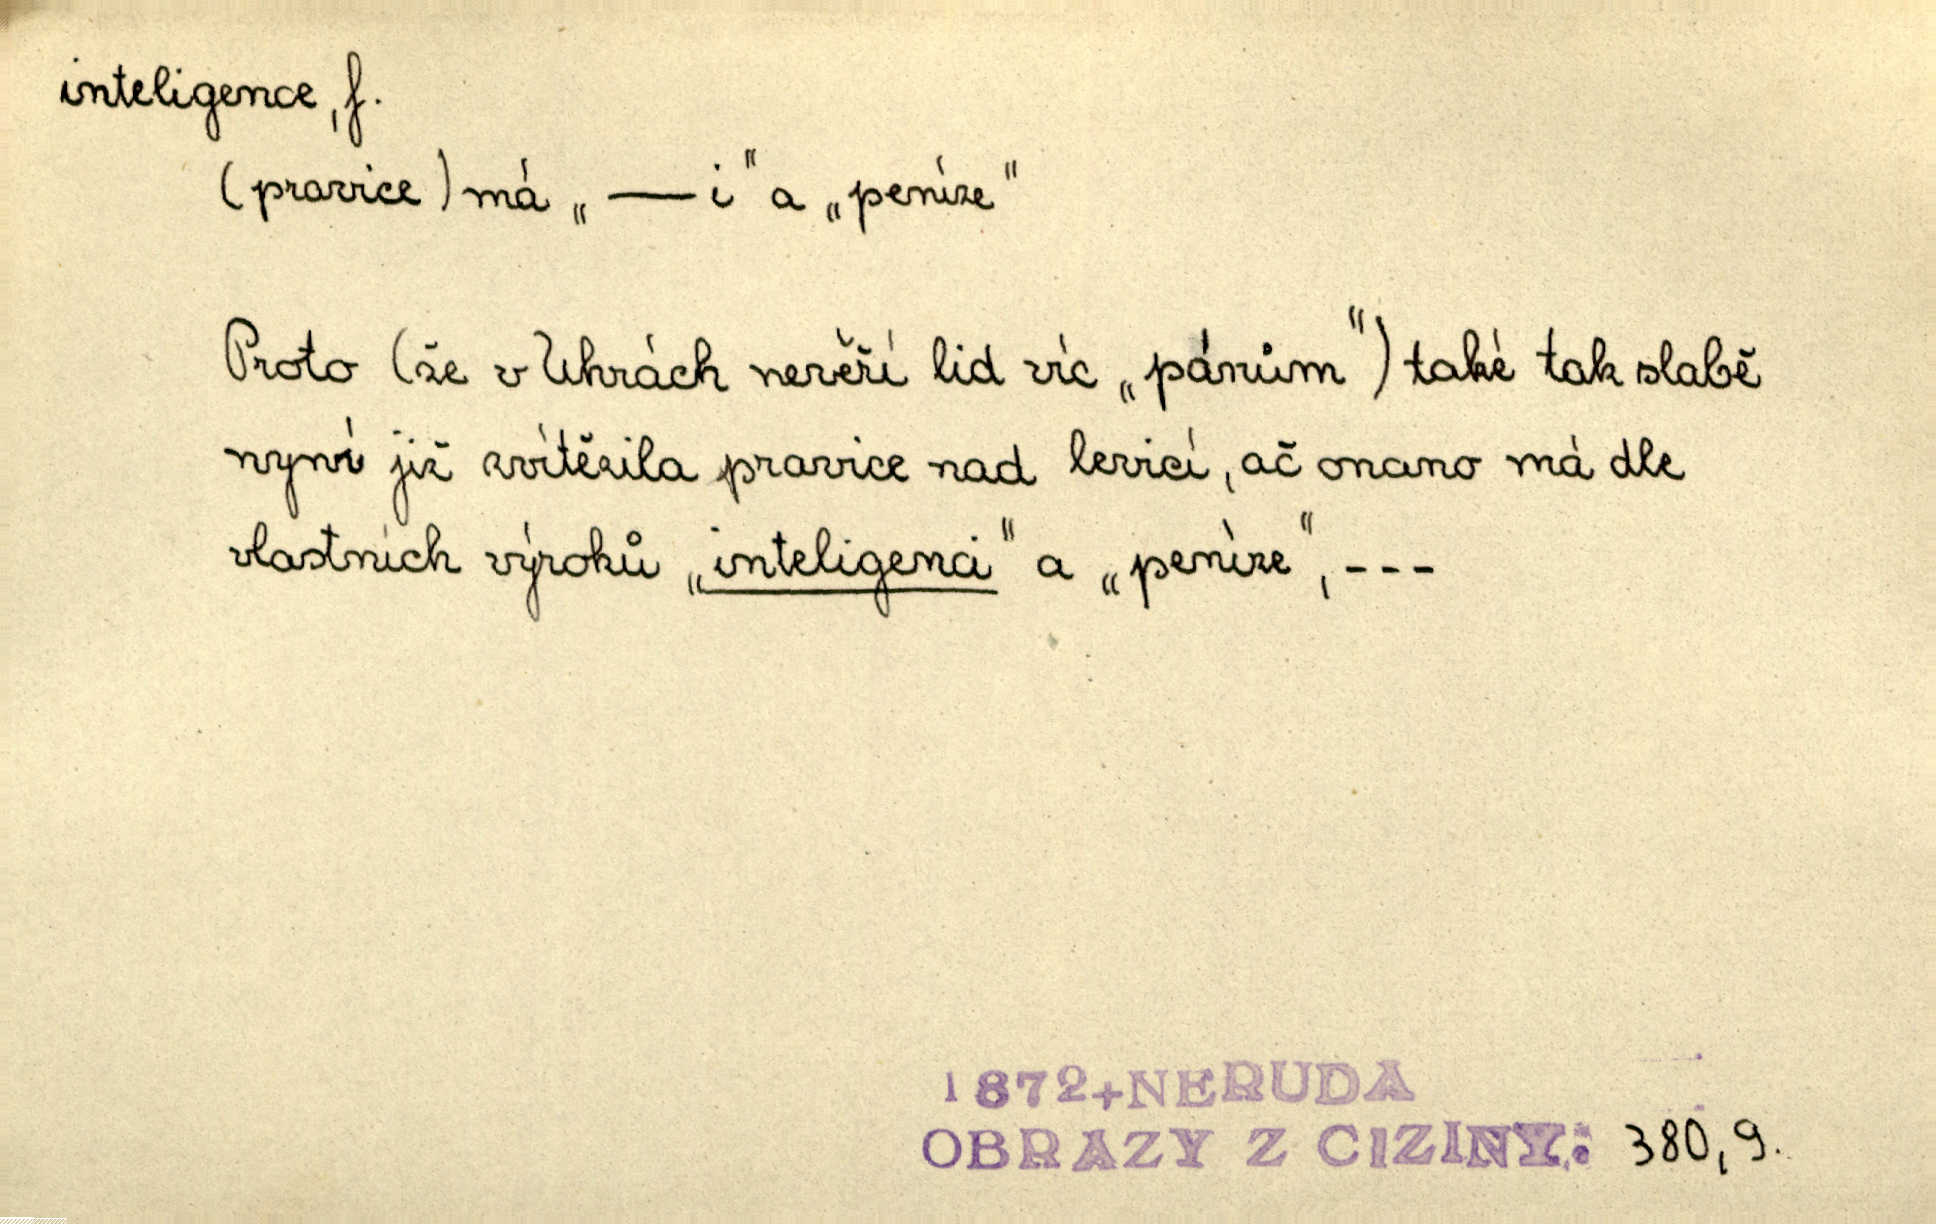 inteligence, f.
(pravice) má „—i“ a „peníze“
Proto (že v Uhrách nevěří lid víc „pánům“) také tak slabě
nyní již zvítězila pravice nad levicí, ač onano má dle
vlastních výroků „inteligenci“ a „peníze“, ---
1872+NERUDA
OBRAZY Z CIZINY: 380, 9.